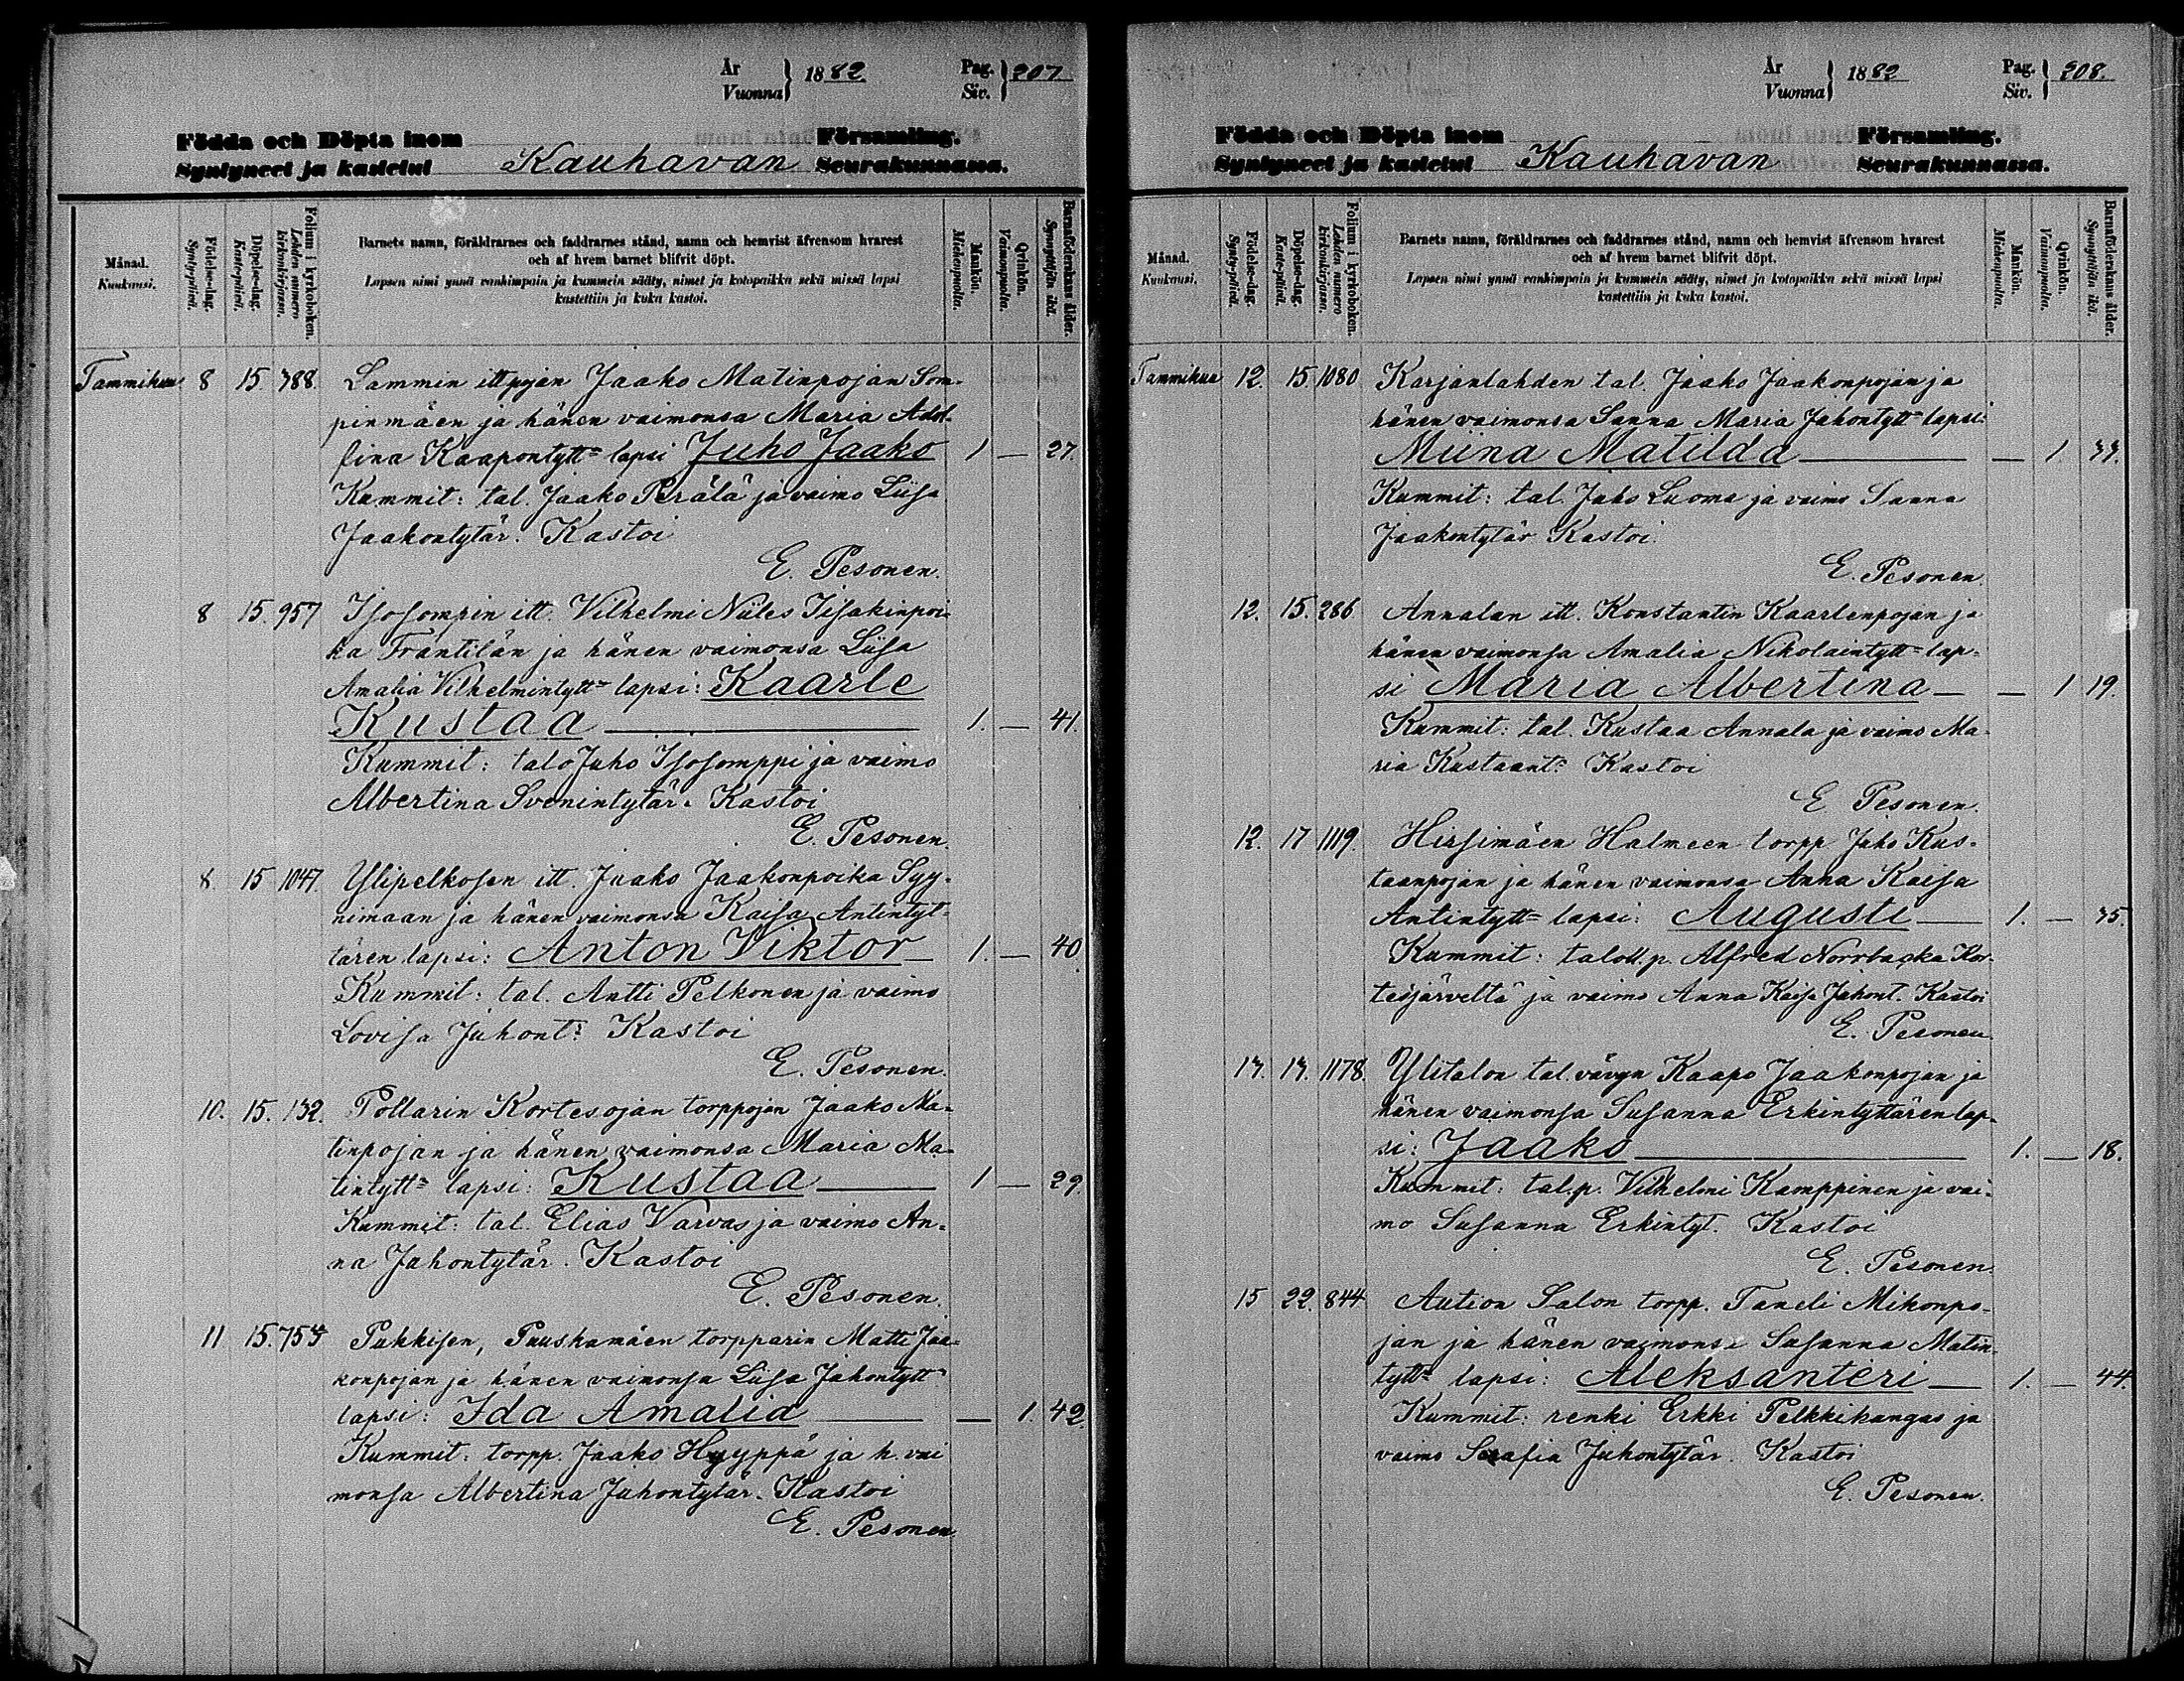 År
Vuonna } 1882
Pag.
Siv. } 207
Födda och Döpta inom Församling.
Syntyneet ja kastetut Kauhavan Seurakunnassa.
Månad.
Kuukausi.
Födelse-dag.
Synty-päivä.
Döpelse-dag.
Kaste-päivä.
Folium i kyrkoboken.
Lehden numero kirkonkirjassa.
Barnets namn, föräldrarnes och faddrarnes stånd, namn och hemvist äfvensom hvarest
och af hvem barnet blifvit döpt.
Lapsen nimi ynnä vanhimpain ja kummein sääty, nimet ja kotopaikka sekä missä lapsi
kastettiin ja kuka kastoi.
Mankön.
Miehenpuolta.
Qvinkön.
Vaimonpuolta.
Barnaföderskans ålder.
Synnyttäjän ikä.
Tammikuu 8 15 388. Lammin ittpojan Jaako Matinpojan Som-
pinmäen ja hänen vaimonsa Maria Adol-
fina Kaapontytt= lapsi Juho Jaako 1 — 27.
Kummit: tal. Jaako Perälä ja vaimo Liisa
Jaakontytär. Kastoi
E. Pesonen.
8 15. 957 Isosompin itt. Vilhelmi Niiles Iisakinpoi-
ka Frantilän ja hänen vaimonsa Liisa
Amalia Vilhelmintytt= lapsi: Kaarle
Kustaa 1. — 41.
Kummit: talo Juho Isosomppi ja vaimo
Albertina Svenintytär. Kastoi
E. Pesonen.
8. 15 1047. Ylipelkosen itt. Jaako Jaakonpoika Syy-
nimaan ja hänen vaimonsa Kaisa Antintyt-
tären lapsi: Anton Viktor 1. — 40.
Kummit: tal. Antti Pelkonen ja vaimo
Lovisa Juhont: Kastoi
E. Pesonen.
10. 15. 132. Pollarin Kortesojan torppojan Jaako Ma-
tinpojan ja hänen vaimonsa Maria Ma-
tintytt= lapsi: Kustaa 1 — 29.
Kummit: tal. Elias Varvas ja vaimo An-
na Juhontytär. Kastoi
E. Pesonen.
11 15. Pukkisen, Puuskamäen torpparin Matti Jaa-
konpojan ja hänen vaimonsa Liisa Juhontytt=
lapsi: Ida Amalia — 1. 42.
Kummit: torpp. Jaako Hyyppä ja h. vai
monsa Albertina Juhontytär. Kastoi
E. Pesonen.
År
Vuonna } 1882
Pag.
Siv. } 208.
Födda och Döpta inom Församling.
Syntyneet ja kastetut Kauhavan Seurakunnassa.
Månad.
Kuukausi.
Födelse-dag.
Synty-päivä.
Döpelse-dag.
Kaste-päivä.
Folium i kyrkoboken.
Lehden numero kirkonkirjassa.
Barnets namn, föräldrarnes och faddrarnes stånd, namn och hemvist äfvensom hvarest
och af hvem barnet blifvit döpt.
Lapsen nimi ynnä vanhimpain ja kummein sääty, nimet ja kotopaikka sekä missä lapsi
kastettiin ja kuka kastoi.
Mankön.
Miehenpuolta.
Qvinkön.
Vaimonpuolta.
Barnaföderskans ålder.
Synnyttäjän ikä.
Tammikuu 12. 15. 1080 Karjanlahden tal. Jaako Jaakonpojan ja
hänen vaimonsa Sanna Maria Juhontytt= lapsi:
Miina Matilda — 1. 33.
Kummit: tal. Juho Luoma ja vaimo Sanna
Jaakontytär Kastoi.
E. Pesonen
12. 15. 286 Annalan itt. Konstantin Kaarlenpojan ja
hänen vaimonsa Amalia Nikolaintytt= lap-
si Maria Albertina — 1 19.
Kummit: tal. Kustaa Annala ja vaimo Ma-
ria Kustaant: Kastoi
E. Pesonen.
12. 17 1119. Hirsimäen Halmeen torpp Juho Kus-
taanpojan ja hänen vaimonsa Anna Kaisa
Antintytt= lapsi: Augusti 1. — 35.
Kummit: taloll.p. Alfred Norrbacka Kor-
tesjärveltä ja vaimo Anna Kaisa Juhont. Kastoi
E. Pesonen.
13. 17. 1178. Ylitalon tal. vävyn Kaapo Jaakonpojan ja
hänen vaimonsa Susanna Erkintyttären lap-
si: Jaako 1. — 18.
Kummit: tal.p. Vilhelmi Kamppinen ja vai-
mo Susanna Erkintyt. Kastoi
E. Pesonen.
15 22. 844 Aution Salon torpp. Taneli Mikonpo-
jan ja hänen vaimonsa Susanna Matin-
tytt= lapsi: Aleksanteri 1. — 44.
Kummit: renki Erkki Pelkkikangas ja
vaimo Serafia Juhontytär. Kastoi
E. Pesonen.